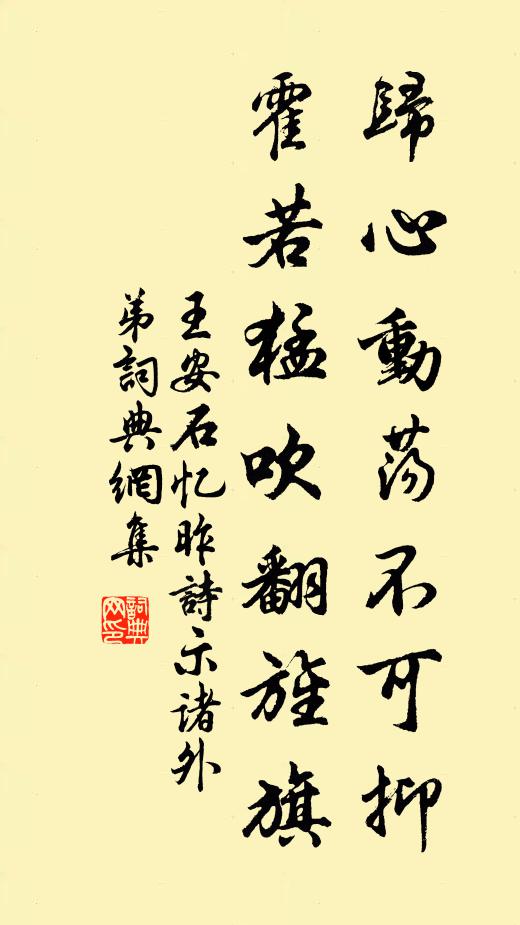 歸心動荡不可抑
霍若猛吹翻旌旗
王安石忆昨詩示诸外
弟詞典網集
詞典
网印